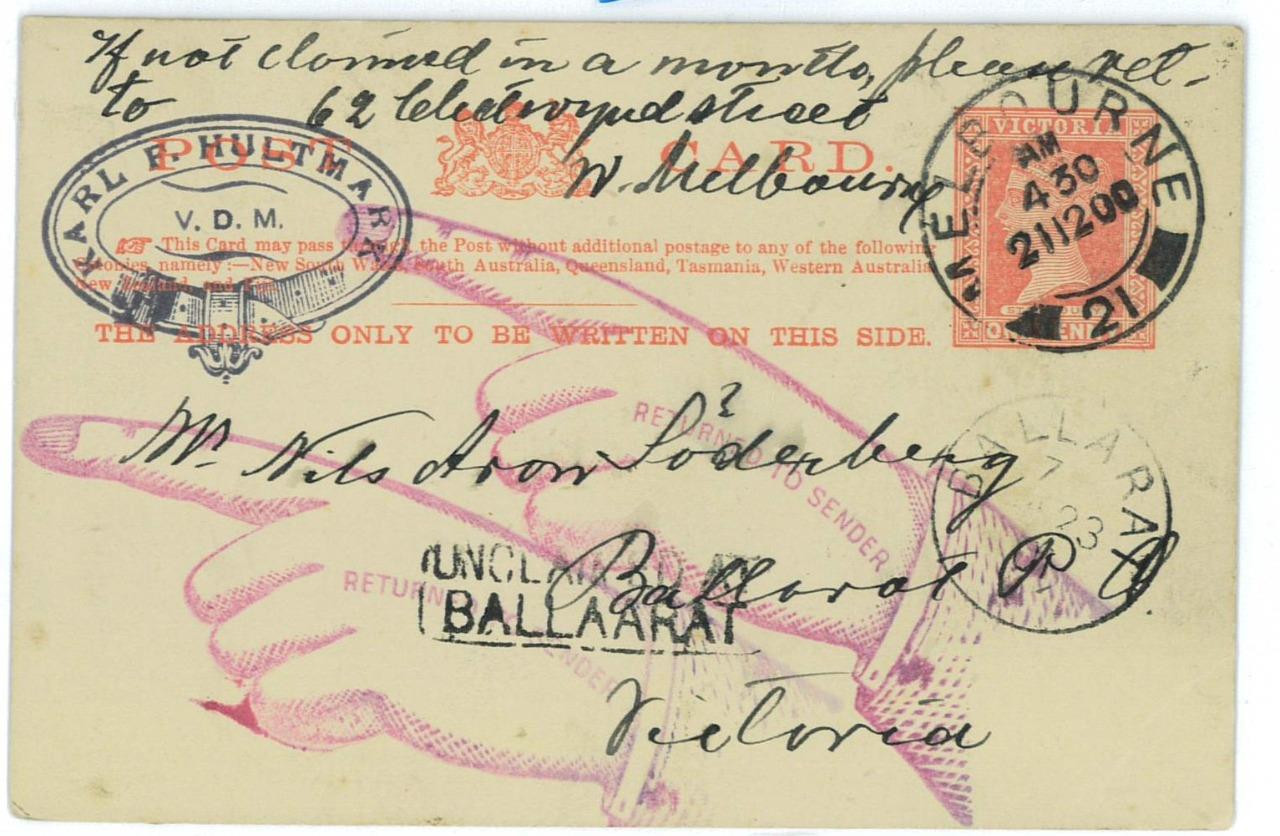 If not claimed in a month, please ret.
to 62 Chetwynd street
W. Melbourne
POST CARD.
KARL F. HULTMARK
V. D. M.
This Card may pass through the Post without additional postage to any of the following
Colonies, namely :—New South Wales, South Australia, Queensland, Tasmania, Western Australia,
New Zealand, and Fiji.
THE ADDRESS ONLY TO BE WRITTEN ON THIS SIDE.
VICTORIA
ONE PENNY
MELBOURNE
AM
4 30
21 12 00
21
Mr. Nils Aron Söderberg
Ballarat P. O.
Victoria
RETURNED TO SENDER
RETURNED TO SENDER
UNCLAIMED AT
BALLAARAT
BALLARAT
7
23